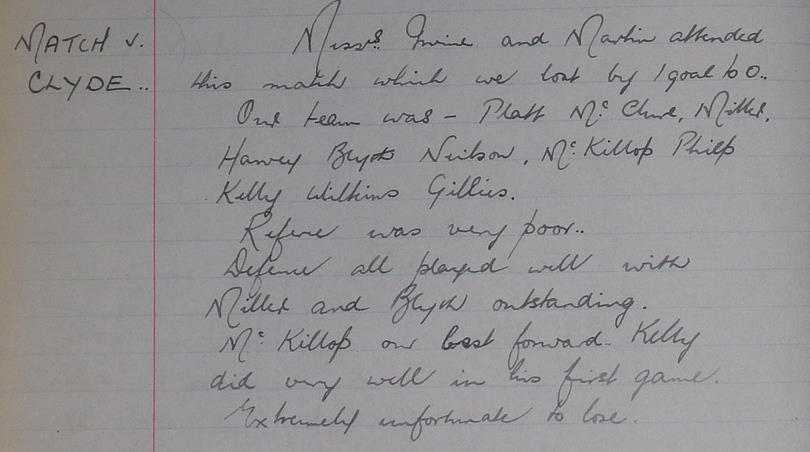 MATCH v.
CLYDE..
Messrs. Irvine and Martin attended
this match which we lost by 1 goal to 0..
Our team was - Platt Mc Clure, Miller,
Harvey Blyth Neilson, Mc Killop Philp
Kelly Wilkins Gillies.
Referee was very poor..
Defence all played well with
Miller and Blyth outstanding.
Mc Killop our best forward.. Kelly
did very well in his first game.
Extremely unfortunate to lose.